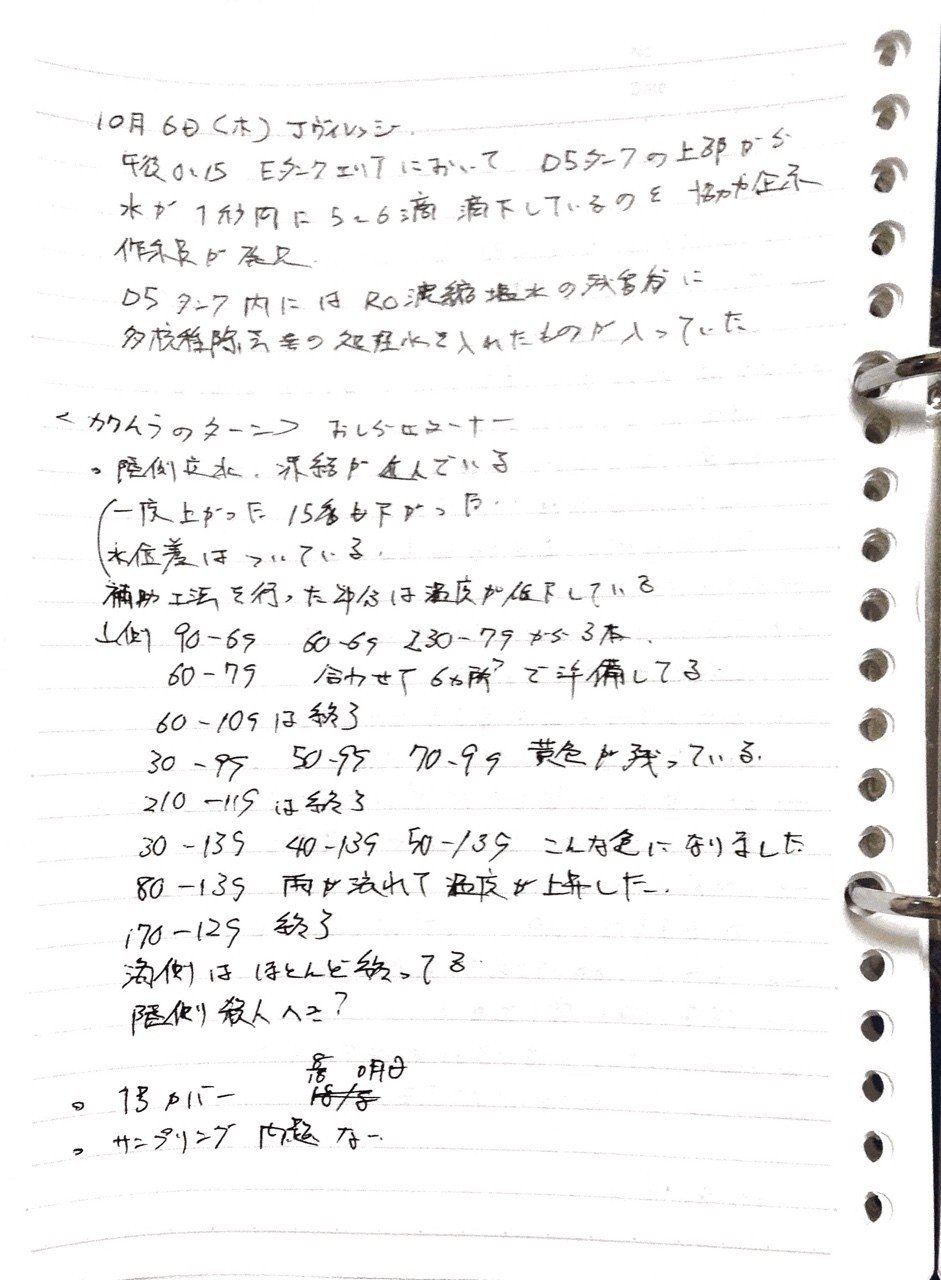 10月6日(木) Jヴィレッジ.
午後0:15 Eタンクエリアにおいて D5タンクの上部から
水が 1秒間に 5~6滴 滴下しているのを 協力企業
作業員が発見.
D5タンク内には RO濃縮塩水の残留分に
多核種除去 の処理水を入れたものが入っていた
のターン> おしらせコーナー
。陸側 凍結が進んでいる
(一度上がった 15番も下がった.
水位差はついている.
補助工法を行った部分は温度が低下している
山側 90-6S 60-6S 230-7Sから3本.
60-7S 合わせて 6ヵ所? で準備してる.
60-10Sは終了
30-9S 50-9S 70-9S 黄色が残っている.
210-11Sは終了
30-13S 40-13S 50-13S こんな色になりました
80-13S 雨が流れて温度が上昇した.
170-12S 終了
海側は ほとんど終ってる.
陸側
。1号カバー
。サンプリング 問題なし